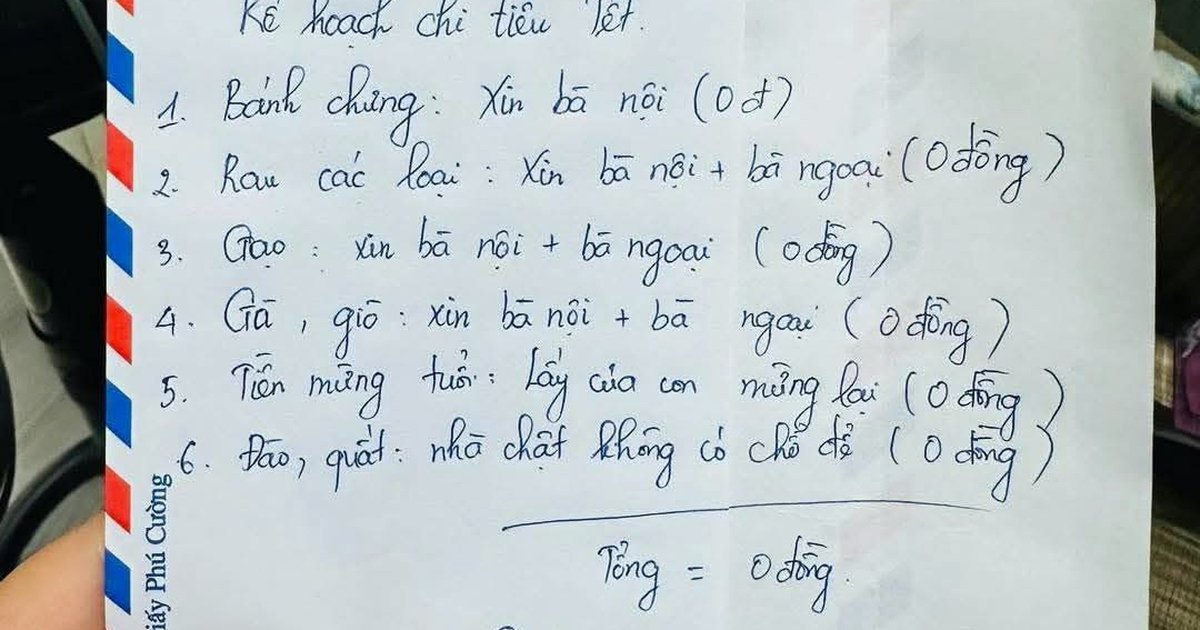 Kế hoạch chi tiêu Tết.
1. Bánh chưng: Xin bà nội (0 đ)
2. Rau các loại: Xin bà nội + bà ngoại (0 đồng)
3. Gạo: xin bà nội + bà ngoại (0 đồng)
4. Gà, giò: xin bà nội + bà ngoại (0 đồng)
5. Tiền mừng tuổi: Lấy của con mừng lại (0 đồng)
6. Đào, quất: nhà chật không có chỗ để (0 đồng)
Tổng = 0 đồng.
Giấy Phú Cường